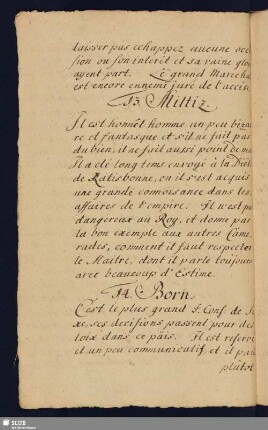 laisser pas echappez aucune occa
sion ou son interêt et sa vaine gloi
ayent part. Le grand Marecha
est encore ennemi juré de l'accis
13. Miltiz
Il est honnêt homme un peu bizar
re et fantasque et s'il ne fait pas
du bien, il ne fait aussi point de ma
Il a été long tems envoyé à la Diet
de Ratisbonne, ou il s'est acquis
une grande connoisance dans les
affaires de l'empire. Il n'est pa
dangereux au Roy, et donne par
la bon exemple aux autres Came
rades, comment il faut respecter
le Maitre, dont il parle toujours
avec beaucoup d'Estime.
14. Born
C'est le plus grand J. Conf. de Sa
xe, ses decisions passent pour des
loix dans ce païs. Il est reservé
et un peu communicatif, et il pa
plûtot
SLUB